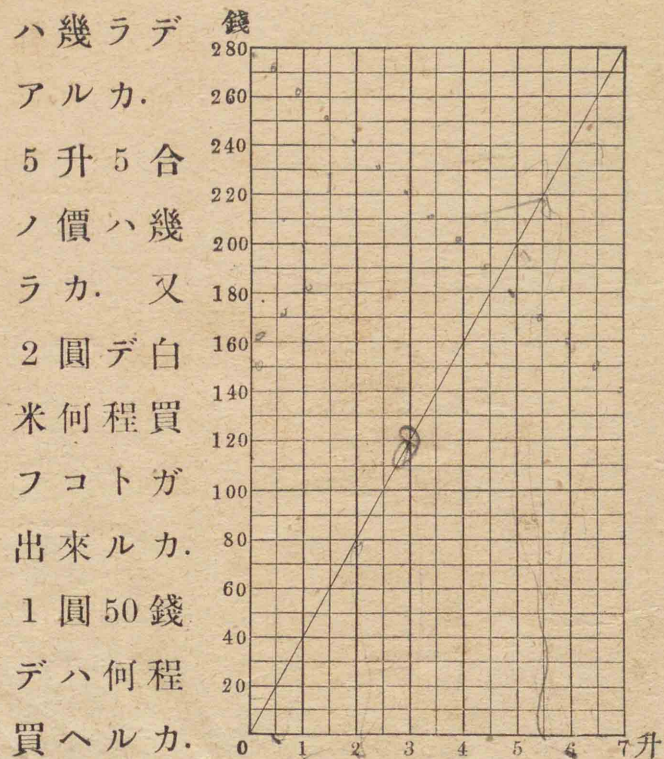 ハ幾ラデ
アルカ.
5升5合
ノ價ハ幾
ラカ. 又
2圓デ白
米何程買
フコトガ
出來ルカ.
1圓50錢
デハ何程
買ヘルカ.
錢
280
260
240
220
200
180
160
140
120
100
80
60
40
20
0 1 2 3 4 5 6 7升